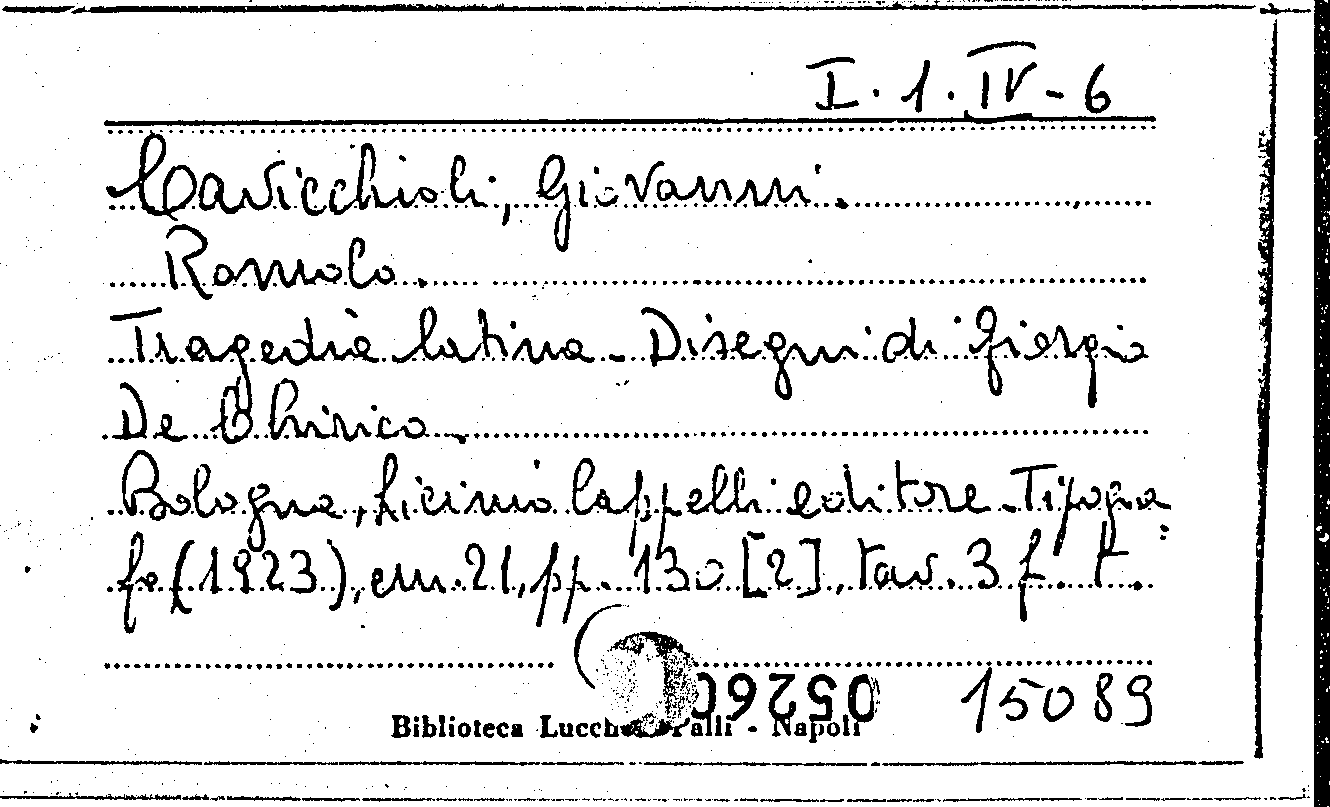 I.1.IV-6
Cavicchioli, Giovanni.
Romolo.
Tragedia latina - Disegni di Giorgio
De Chirico.
Bologna, Licinio Cappelli editore - Tipogra
fe (1923), cm. 21, pp. 130 [2], tav. 3 f. t.
15089
Biblioteca Lucchesi Palli - Napoli